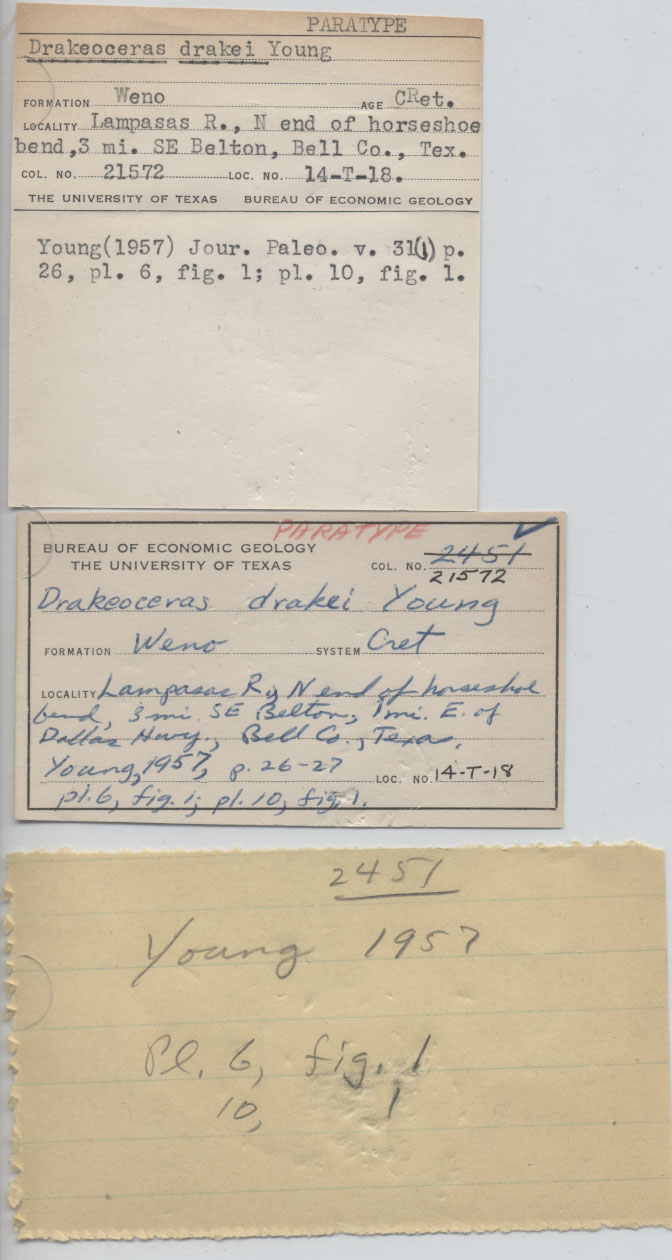 PARATYPE
Drakeoceras drakei Young
FORMATION Weno AGE CRet.
LOCALITY Lampasas R., N end of horseshoe
bend, 3 mi. SE Belton, Bell Co., Tex.
COL. NO. 21572 LOC. NO. 14-T-18.
THE UNIVERSITY OF TEXAS BUREAU OF ECONOMIC GEOLOGY
Young(1957) Jour. Paleo. v. 31(1) p.
26, pl. 6, fig. 1; pl. 10, fig. 1.
PARATYPE
BUREAU OF ECONOMIC GEOLOGY
THE UNIVERSITY OF TEXAS
COL. NO. 2451
21572
Drakeoceras drakei Young
FORMATION Weno SYSTEM Cret
LOCALITY Lampasas R., N end of horseshoe
bend, 3 mi. SE Belton, 1 mi. E. of
Dallas Hwy., Bell Co., Texas.
Young, 1957, p. 26-27 LOC. NO. 14-T-18
pl. 6, fig. 1; pl. 10, fig. 1.
2451
Young 1957
Pl. 6, fig. 1
10, 1